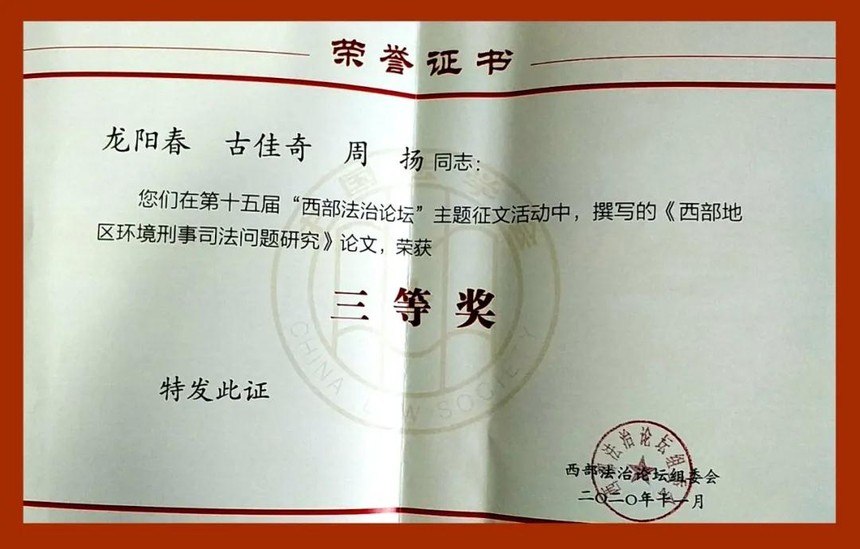 荣誉证书
龙阳春 古佳奇 周 扬 同志：
您们在第十五届“西部法治论坛”主题征文活动中，撰写的《西部地
区环境刑事司法问题研究》论文，荣获
三等奖
CHINA LAW SOCIETY
特发此证
西部法治论坛组委会
二〇二〇年十一月